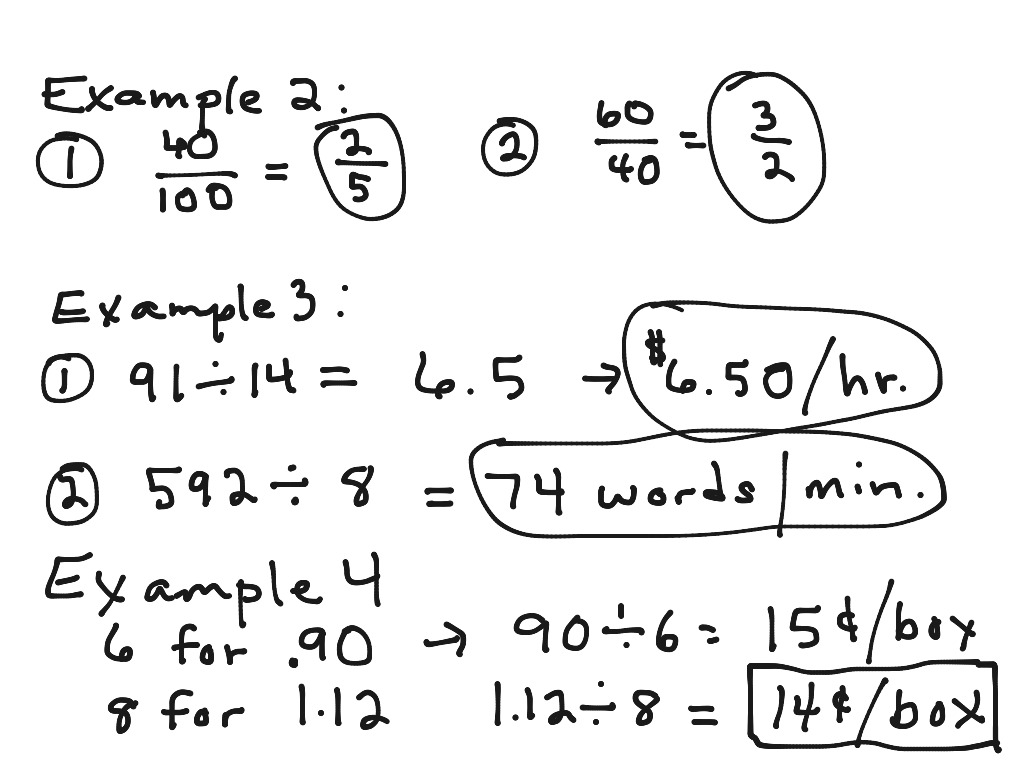 Example 2:
① 40/100 = 2/5 ② 60/40 = 3/2
Example 3:
① 91 ÷ 14 = 6.5 → $6.50/hr.
② 592 ÷ 8 = 74 words/min.
Example 4
6 for .90 → 90 ÷ 6 = 15¢/box
8 for 1.12 1.12 ÷ 8 = 14¢/box